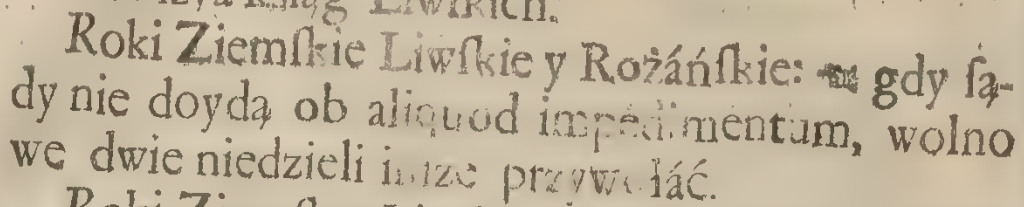 Kſiąg Liwſkich.
Roki Ziemſkie Liwſkie y Rożáńſkie: gdy ſą-
dy nie doydą ob aliquod impedimentum, wolno
we dwie niedzieli inſze przywołáć.
Roki